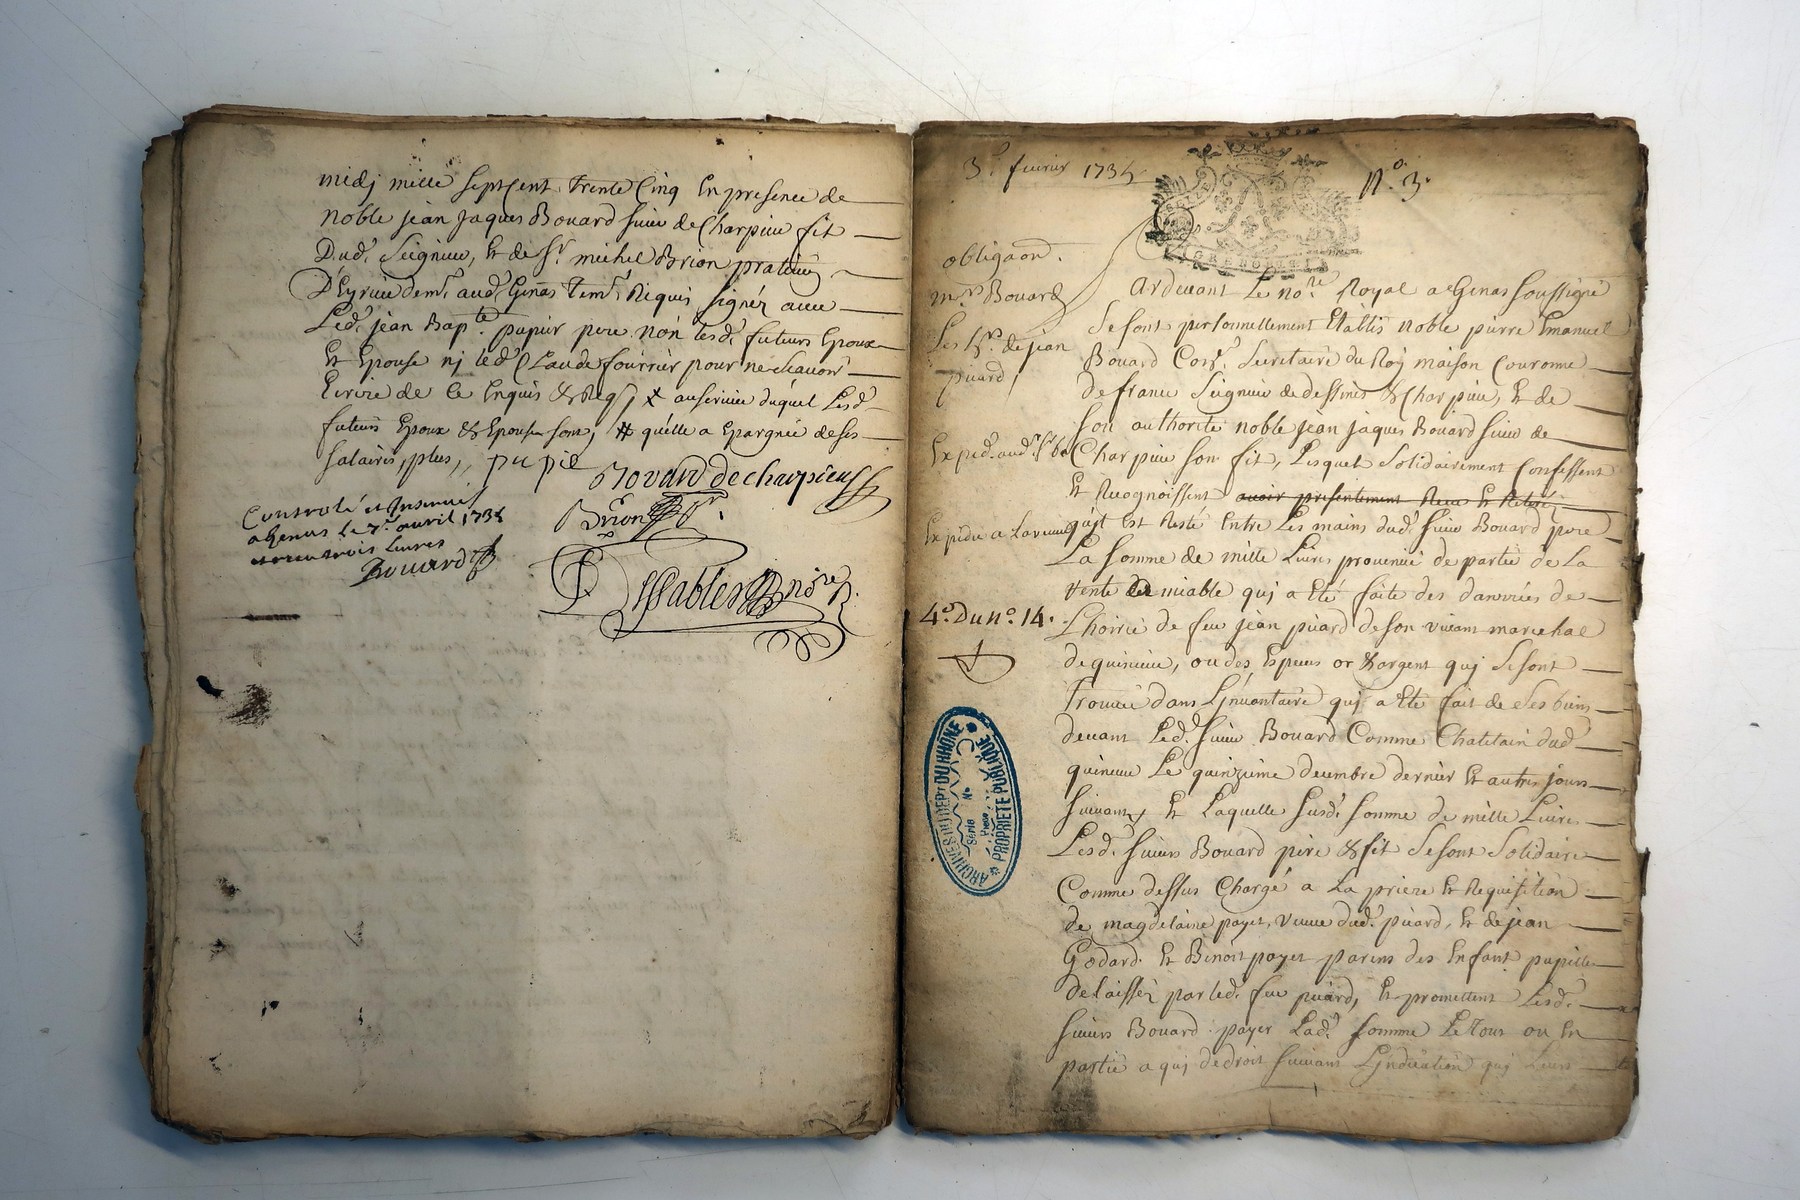 midj mille septcent trente Cinq En presence de
noble jean jaques Bouard sieur de Charpieu fils
Dud. Seigneur, Et de Sr. michel Brion praticien
D'Eyrieu demt. aud. Genas temt. Requis signéz avec
Led. jean Bapte. papier pere non lesd. futeurs Epoux
Et Epouse nj led. Claude fourrier pour ne scauoir
Ecrire de ce Enquis & Req, x au seruice duquel Lesd.
futeurs Epoux & Epouse sont, # qu'elle a Epargnée de ses
salaires, plus,, pupié
Bouard de charpieu
Brion
Controlé et Insinué
a Genas le 7e. avril 1735
trois Liures
Bouard
DesSables nore R.
3e. feurier 1735
No. 3.
GRENOBLE
obligaon.
mrs Bouard
Les hrs. de jean
piiard
Expedé. aud. Sr. Bo
Expedie a la veuue
4o. Du no. 14.
Pardeuant Le nore. Royal a Genas soussigné
se sont personnellement Etablis noble pierre Emanuel
Bouard Consr. Secretaire du Roy maison Couronne
de france Seigneur de dessines & Charpieu, Et de
son authorité noble jean jaques Bouard sieur de
Charpieu son fils, Lesquels solidairement Confessent
Et Recognoissent auoir presentement Receu Et Retiré
qu'il Est Resté Entre Les mains dud. sieur Bouard pere
La somme de mille Liures prouenue de partie de La
vente amiable quj a Eté faite des danrées de
L'hoirie de feu jean piiard de son viuant marechal
de quinieu, ou des Especes or & argent quj se sont
trouué dans L'jnuantaire quj a Eté fait de ses biens
deuant Led. sieur Bouard Comme Chatelain dud.
quineuu Le quinzieme decembre dernier Et autres jours
suiuants, Et Laquelle susd. somme de mille Liures
Lesd. sieurs Bouard pere & fils se sont solidaire
Comme dessus Chargé a La priere Et Requisition
de magdelaine payet, veuue dud. piiard, Et de jean
Godard Et Benoit payet parens des Enfant pupilles
delaissés par led. feu piiard, Et promettent Lesd.
sieurs Bouard payer Lad. somme Le tout ou En
partie a quj de droit suiuant L'jndication quj Leurs
ARCHIVES DU DEPT DU RHONE
Série
No
Pièce
PROPRIETE PUBLIQUE